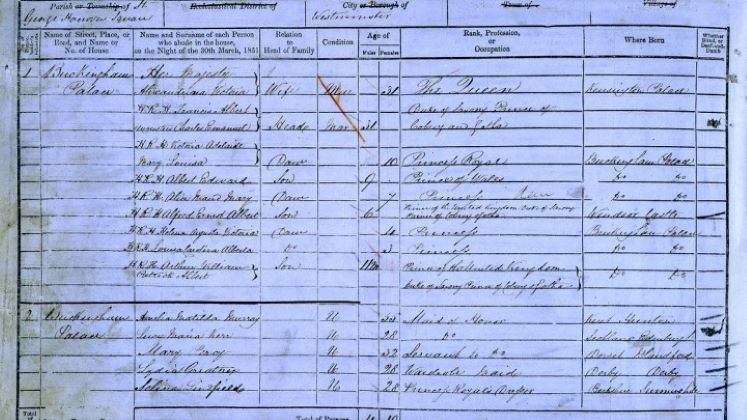 Parish or Township of St. Ecclesiastical District of City or Borough of Town of Village of
George Hanover Square Westminster
Name of Street, Place, or Road, and Name or No. of House
Name and Surname of each Person who abode in the house, on the Night of the 30th March, 1851
Relation to Head of Family
Condition
Age of
Males Females
Rank, Profession, or Occupation
Where Born
Whether Blind, or Deaf-and-Dumb
1 Buckingham Her Majesty
Palace Alexandrina Victoria Wife Mar 31 The Queen Kensington Palace
H R H Francis Albert Duke of Saxony Prince of
Charles Emanuel Head Mar 31 Coburg and Gotha
H R H Victoria Adelaide
Mary Louisa Daur 10 Princess Royal Buckingham Palace
H R H Albert Edward Son 9 Prince of Wales Do Do
H R H Alice Maud Mary Daur 7 Princess Do Do
H R H Alfred Ernest Albert Son 6 Prince of the United Kingdom Duke of Saxony
Prince of Coburg Gotha Windsor Castle
H R H Helena Augusta Victoria Daur 4 Princess Buckingham Palace
H R H Louisa Carolina Alberta Do 3 Princess Do Do
H R H Arthur William Son Prince of the United Kingdom Do Do
Patrick Albert Duke of Saxony Prince of Coburg Gotha
2 Buckingham Amelia Matilda Murray U Maid of Honor Kent
Palace Lucy Maria Kerr U 28 Do Scotland Edinburgh
Mary U 32 Servant to Do Dorset Blandford
Lydia U 28 Wardrobe Maid Derby Derby
Selina U 28 Princess Royals Dresser Berkshire
Total of Total of Persons